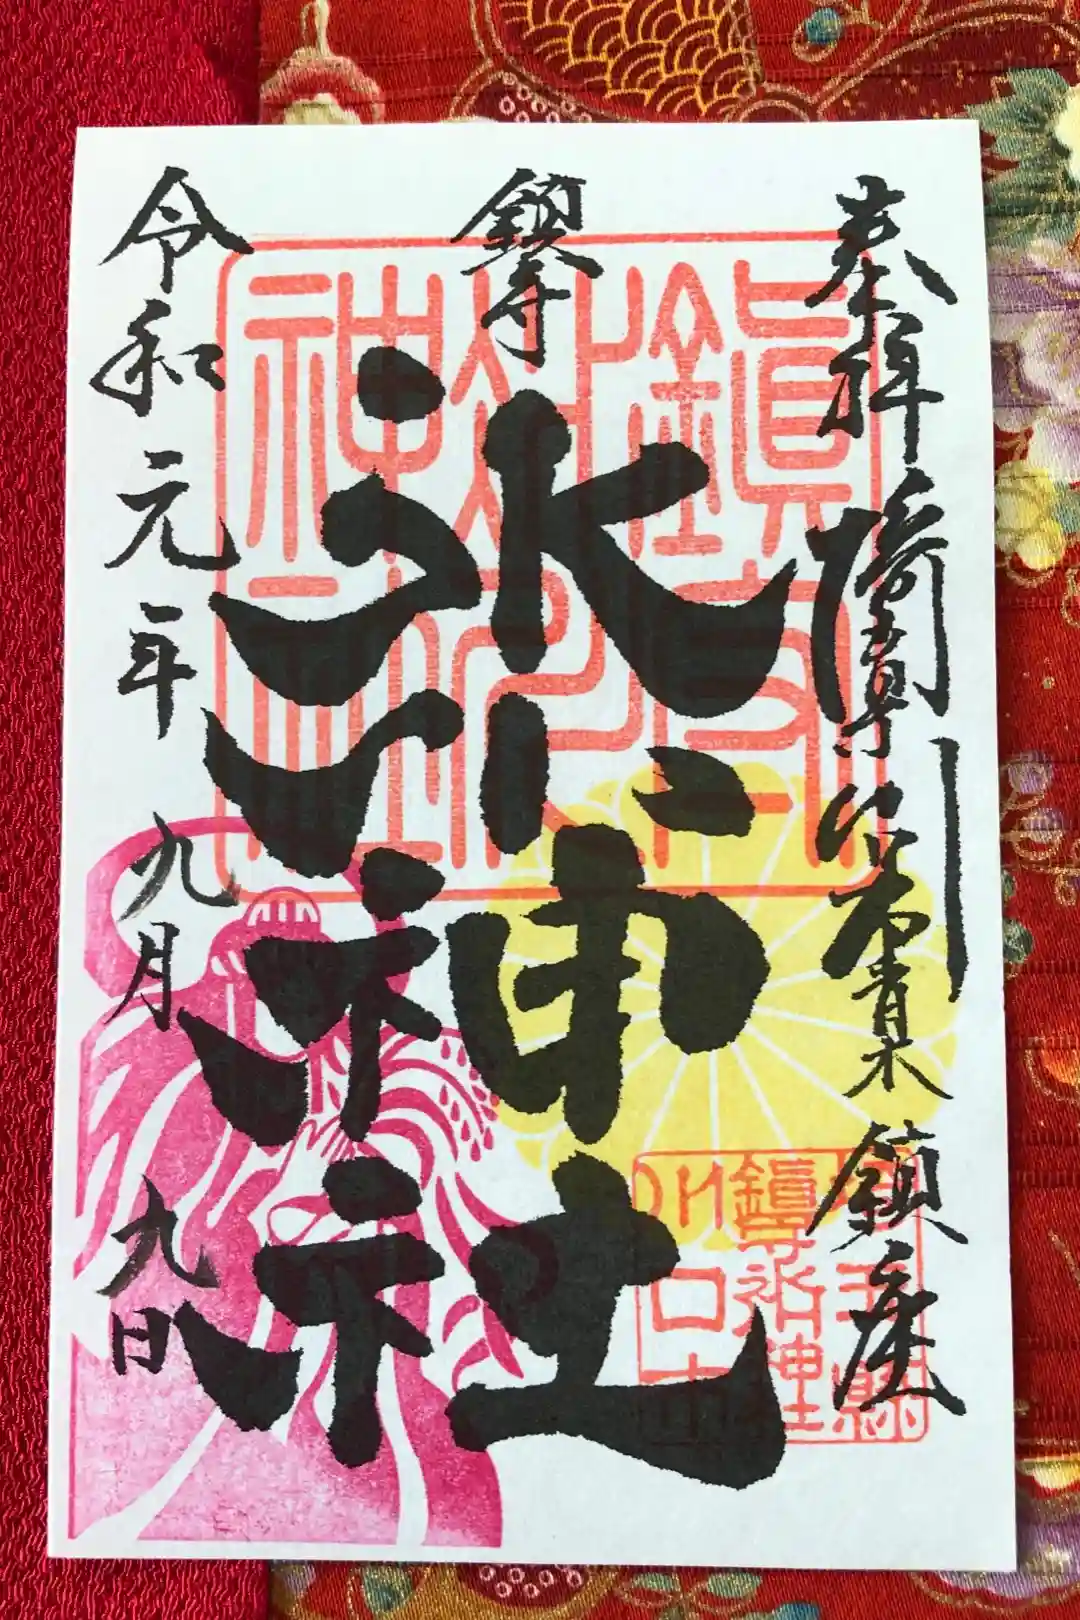 奉拝
青木
鎮座
鎮守
氷川神社
令和元年九月九日
鎮守
氷川
神社
埼玉縣
鎮守氷川神社
川口市